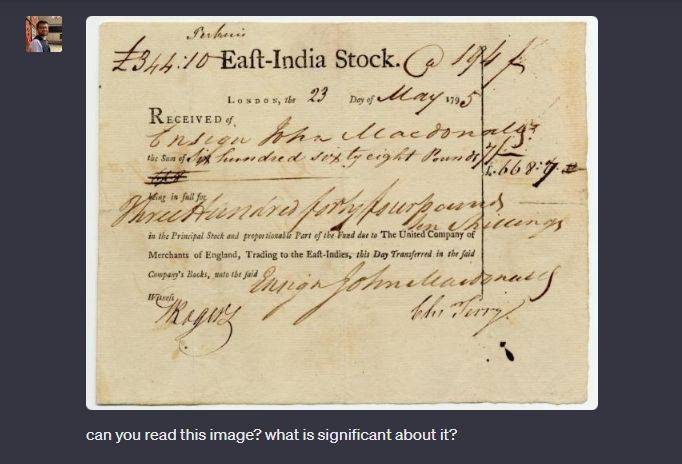 Perkins
£344:10 Eaſt-India Stock. @ 194
LONDON, the 23 Day of May 1795
RECEIVED of
Ensign John Macdonald
the Sum of Six hundred sixty eight Pounds 7/
£.668:7
being in full for
Three Hundred forty four pounds
Ten Shillings
in the Principal Stock and proportionable Part of the Fund due to The United Company of
Merchants of England, Trading to the Eaſt-Indies, this Day Transferred in the ſaid
Company's Books, unto the ſaid Ensign John Macdonald
Witneſs
Rogers
Terry
can you read this image? what is significant about it?